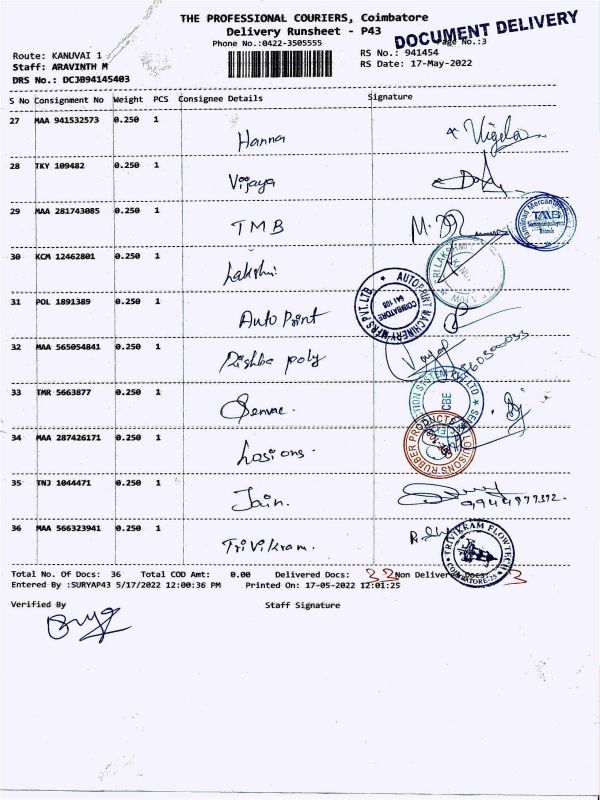 THE PROFESSIONAL COURIERS, Coimbatore
Delivery Runsheet - P43
DOCUMENT DELIVERY
Phone No.:0422-3505555
Page No.:3
Route: KANUVAI 1
RS No.: 941454
Staff: ARAVINTH M
RS Date: 17-May-2022
DRS No.: DCJ094145403
S No Consignment No Weight PCS Consignee Details Signature
27 MAA 941532573 0.250 1
Hanna
28 TKY 109482 0.250 1
Vijaya
29 MAA 281743085 0.250 1
TMB
Tamilnad Mercantile
TMB
30 KCM 12462801 0.250 1
Lakshmi
SRI LAKSHMI
31 POL 1891389 0.250 1
Auto Print
AUTOPRINT MACHINERY MFRS PVT.LTD.
COIMBATORE
641 108
32 MAA 565054841 0.250 1
Rishba poly
33 TMR 5663877 0.250 1
CBE
34 MAA 287426171 0.250 1
Losions.
LOUISONS RUBBER PRODUCTS
35 TNJ 1044471 0.250 1
Jain.
9944979392.
36 MAA 566323941 0.250 1
Trivikram.
TRIVIKRAM FLOWTECH
COIMBATORE-25
Total No. Of Docs: 36 Total COD Amt: 0.00 Delivered Docs: 33 Non Delivered Docs: 3
Entered By :SURYAP43 5/17/2022 12:00:36 PM Printed On: 17-05-2022 12:01:25
Verified By Staff Signature